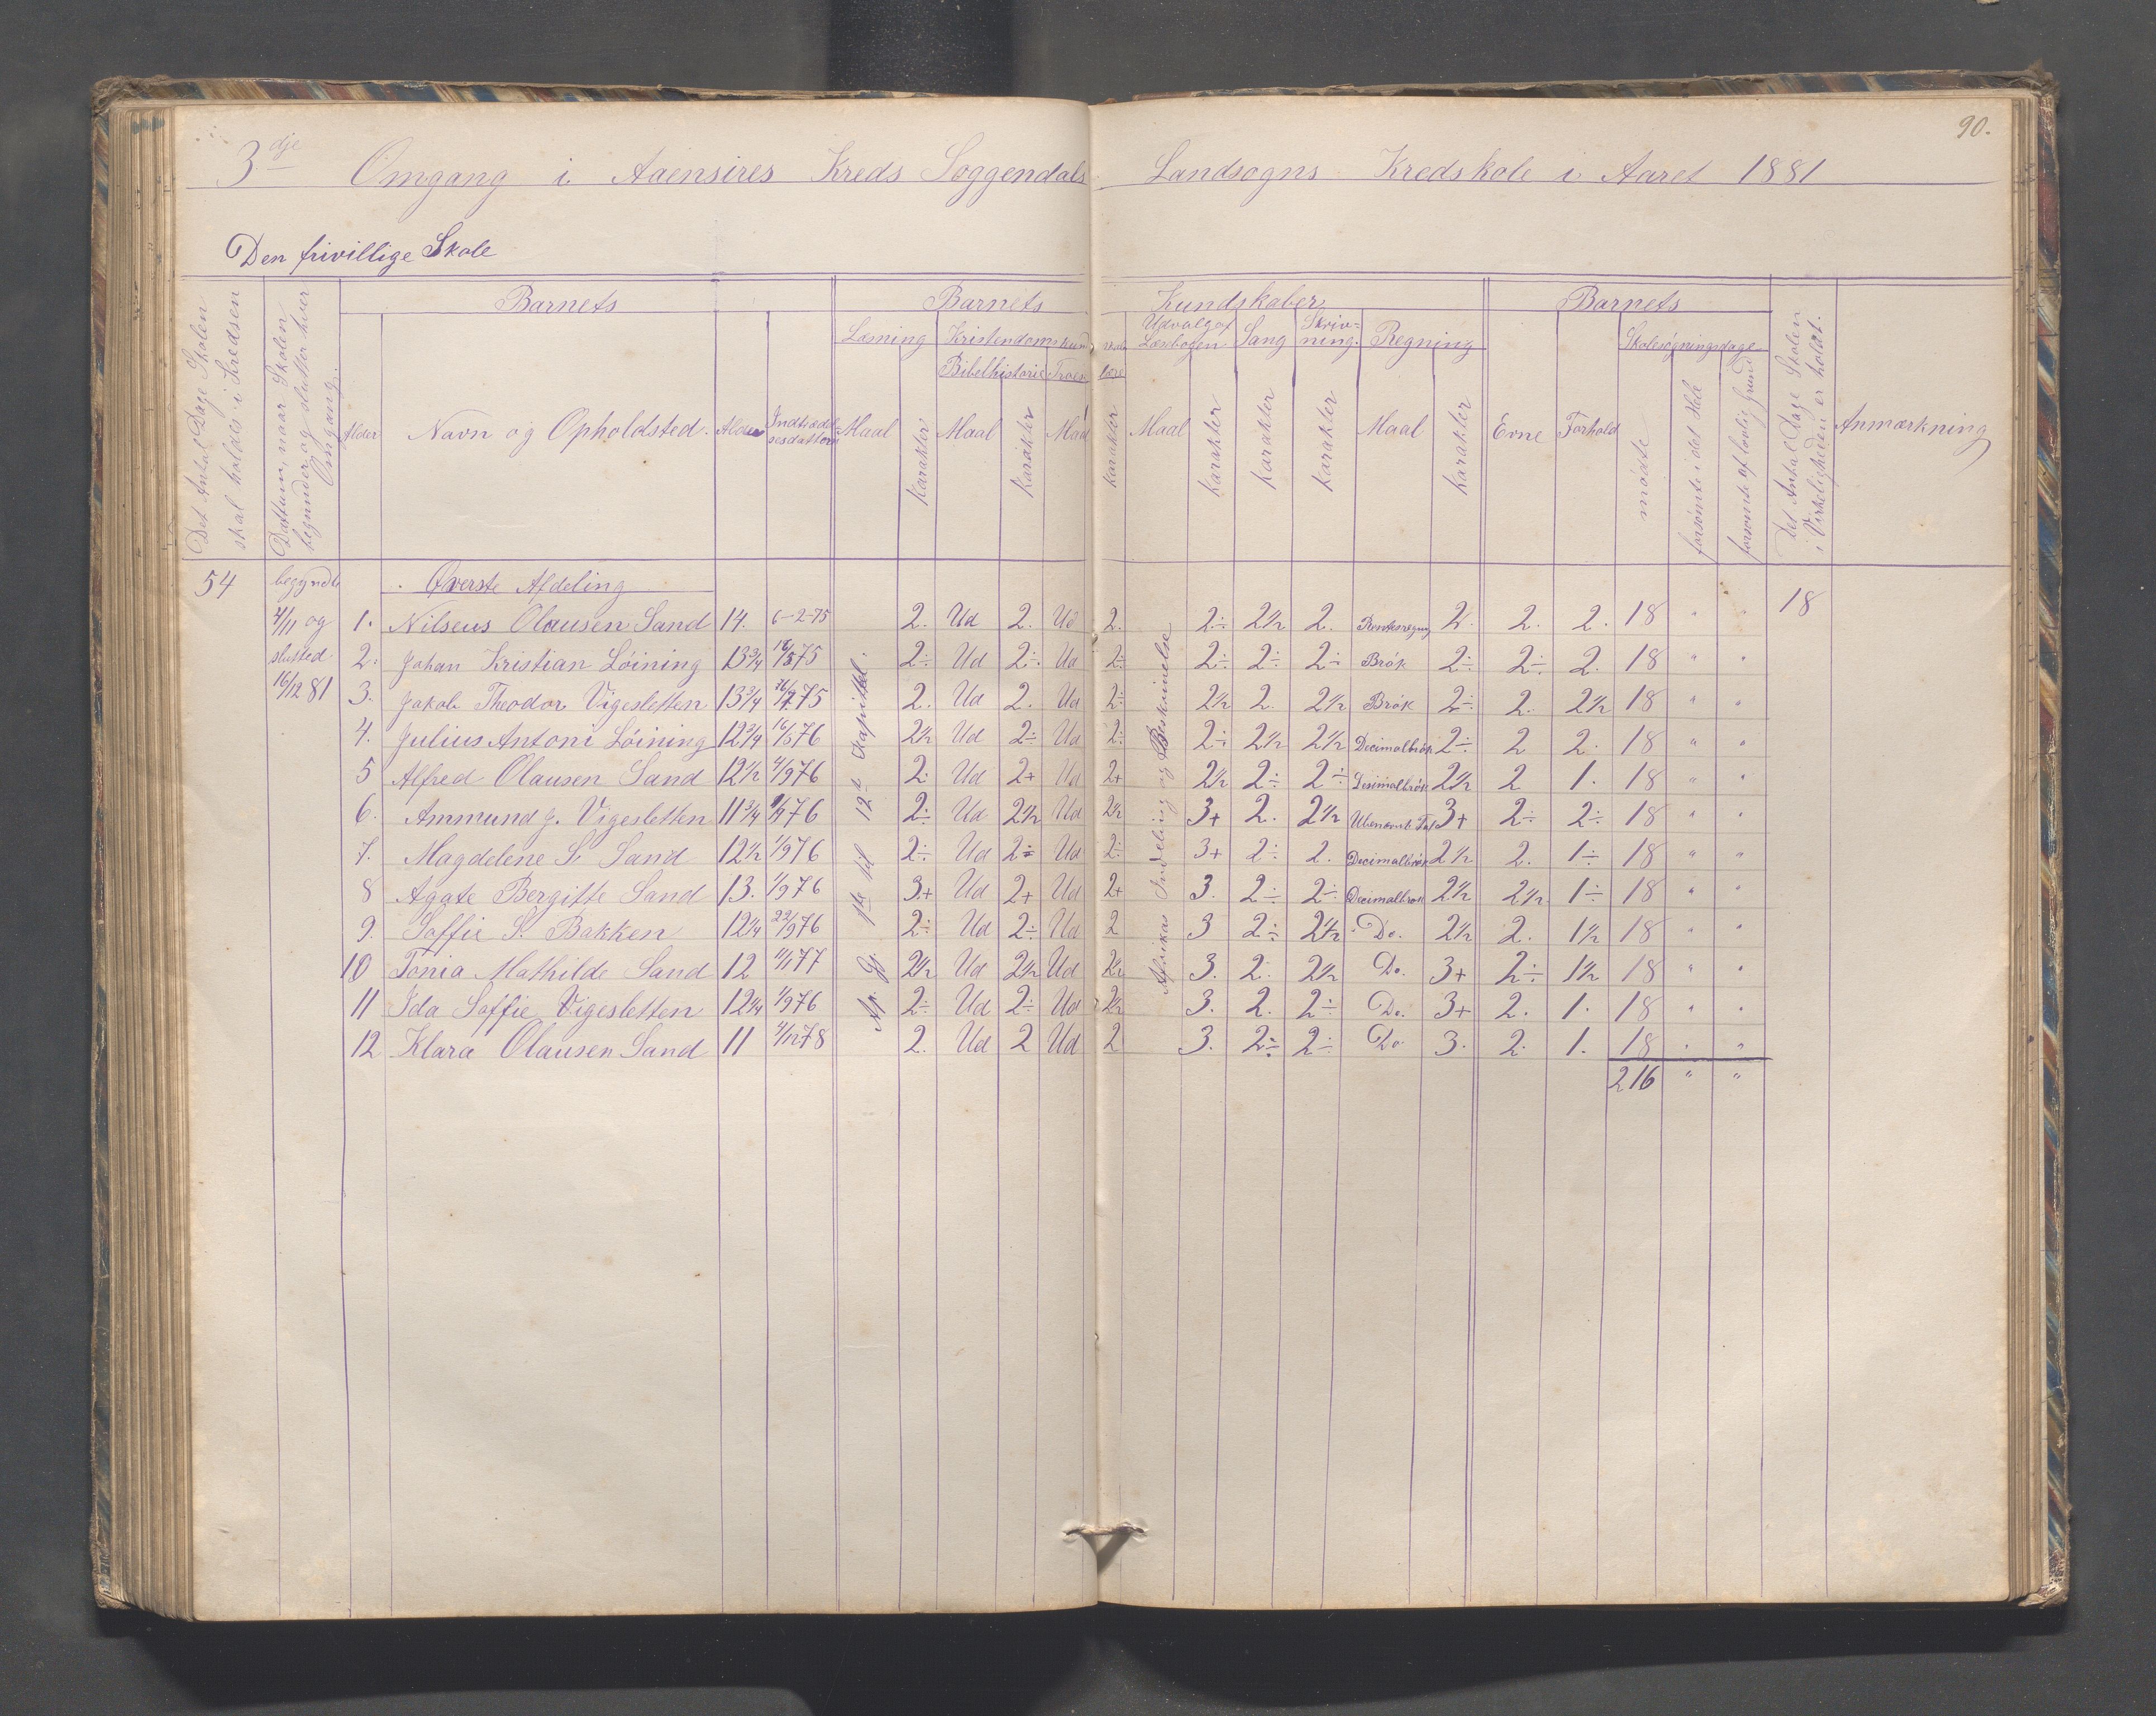 90.
3dje Omgang i Aaensires Kreds Soggendals Landsogns Kredskole i Aaret 1881
Den frivillige Skole
Det Antal Dage Skolen skal holdes i Kredsen
Dattum, naar Skolen begynder og slutter hver Omgang.
Barnets
Alder
Navn og Opholdsted.
Alder
Indtrædelsesdattum
Barnets Kundskaber
Læsning
Maal
Karakter
Kristendomskundskab
Bibelhistorie
Maal
Karakter
Troeslære
Maal
Karakter
Udvalg af Læsebogen
Maal
Karakter
Sang
Karakter
Skrivning.
Karakter
Regning
Maal
Karakter
Barnets
Evne
Forhold
Skolesøgningsdage
mødte
forsømte i det Hele
forsømte af lovlig Grund
Det Antal Dage Skolen i Virkeligheden er holdt.
Anmærkning
54
begyndt 4/11 og slutted 16/12 81
Øverste Afdeling
Ap. Gj. 1ste til 12te Kapittel.
Afrikas Inddeling og Beskrivelse
18
1. Nilseus Olausen Sand 14. 6-2-75 2. Ud 2. Ud 2. 2÷ 2½ 2. Rentesregng 2. 2. 2. 18 " "
2. Johan Kristian Løining 13¾ 16/575 2÷ Ud 2÷ Ud 2÷ 2÷ 2÷ 2÷ Brøk 2÷ 2÷ 2. 18 " "
3. Jakob Theodor Vigesletten 13¾ 75 2. Ud 2. Ud 2÷ 2½ 2. 2½ Brøk 2÷ 2. 2½ 18 " "
4. Julius Antoni Løining 12¾ 16/576 2½ Ud 2÷ Ud 2÷ 2÷ 2½ 2½ Decimalbrøk 2÷ 2 2. 18 " "
5 Alfred Olausen Sand 12½ 4/976 2. Ud 2+ Ud 2+ 2½ 2÷ 2÷ Desimalbrøk 2½ 2 1. 18 " "
6. Ammund J. Vigesletten 11¾ 76 2÷ Ud 2½ Ud 2½ 3+ 2. 2½ Ubenævnte Tal 3+ 2÷ 2÷ 18 " "
7. Magdelene S. Sand 12½ 1/976 2÷ Ud 2÷ Ud 2÷ 3+ 2÷ 2. Decimalbrøk 2½ 2. 1÷ 18 " "
8 Agate Bergitte Sand 13. 1/976 3+ Ud 2+ Ud 2+ 3. 2÷ 2÷ Decimalbrøk 2½ 2½ 1÷ 18 " "
9. Soffie S. Bakken 12¼ 22/976 2÷ Ud 2÷ Ud 2 3 2÷ 2½ Do. 2½ 2. 1½ 18 " "
10 Tonia Mathilde Sand 12 77 2½ Ud 2½ Ud 2½ 3. 2. 2½ Do. 3+ 2÷ 1½ 18 " "
11 Ida Soffie Vigesletten 12¼ 1/976 2÷ Ud 2÷ Ud 2½ 3. 2. 2÷ Do. 3+ 2. 1. 18 " "
12 Klara Olausen Sand 11 78 2. Ud 2 Ud 2 3. 2÷ 2÷ Do 3. 2. 1. 18 " "
216 " "